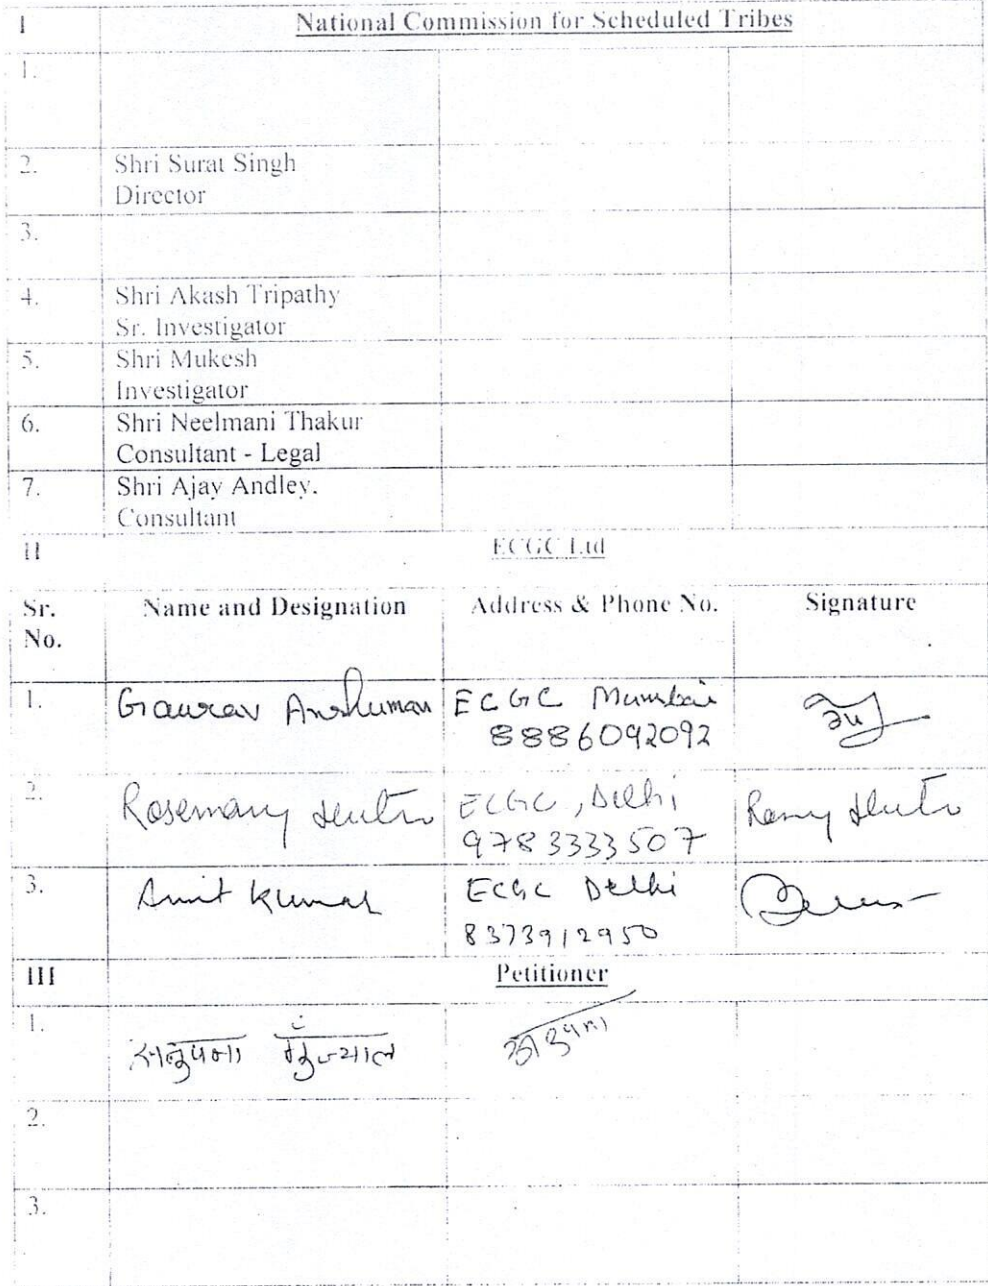 I National Commission for Scheduled Tribes
1.
2. Shri Surat Singh
Director
3.
4. Shri Akash Tripathy
Sr. Investigator
5. Shri Mukesh
Investigator
6. Shri Neelmani Thakur
Consultant - Legal
7. Shri Ajay Andley.
Consultant
II ECGC Ltd
Sr. No. Name and Designation Address & Phone No. Signature
1. Gaurav Anshuman ECGC Mumbai
8886092092
2. Rosemary ECGC, Delhi
9783333507
3. Amit Kumar ECGC Delhi
8373912950
III Petitioner
1. अनुपमा
2.
3.